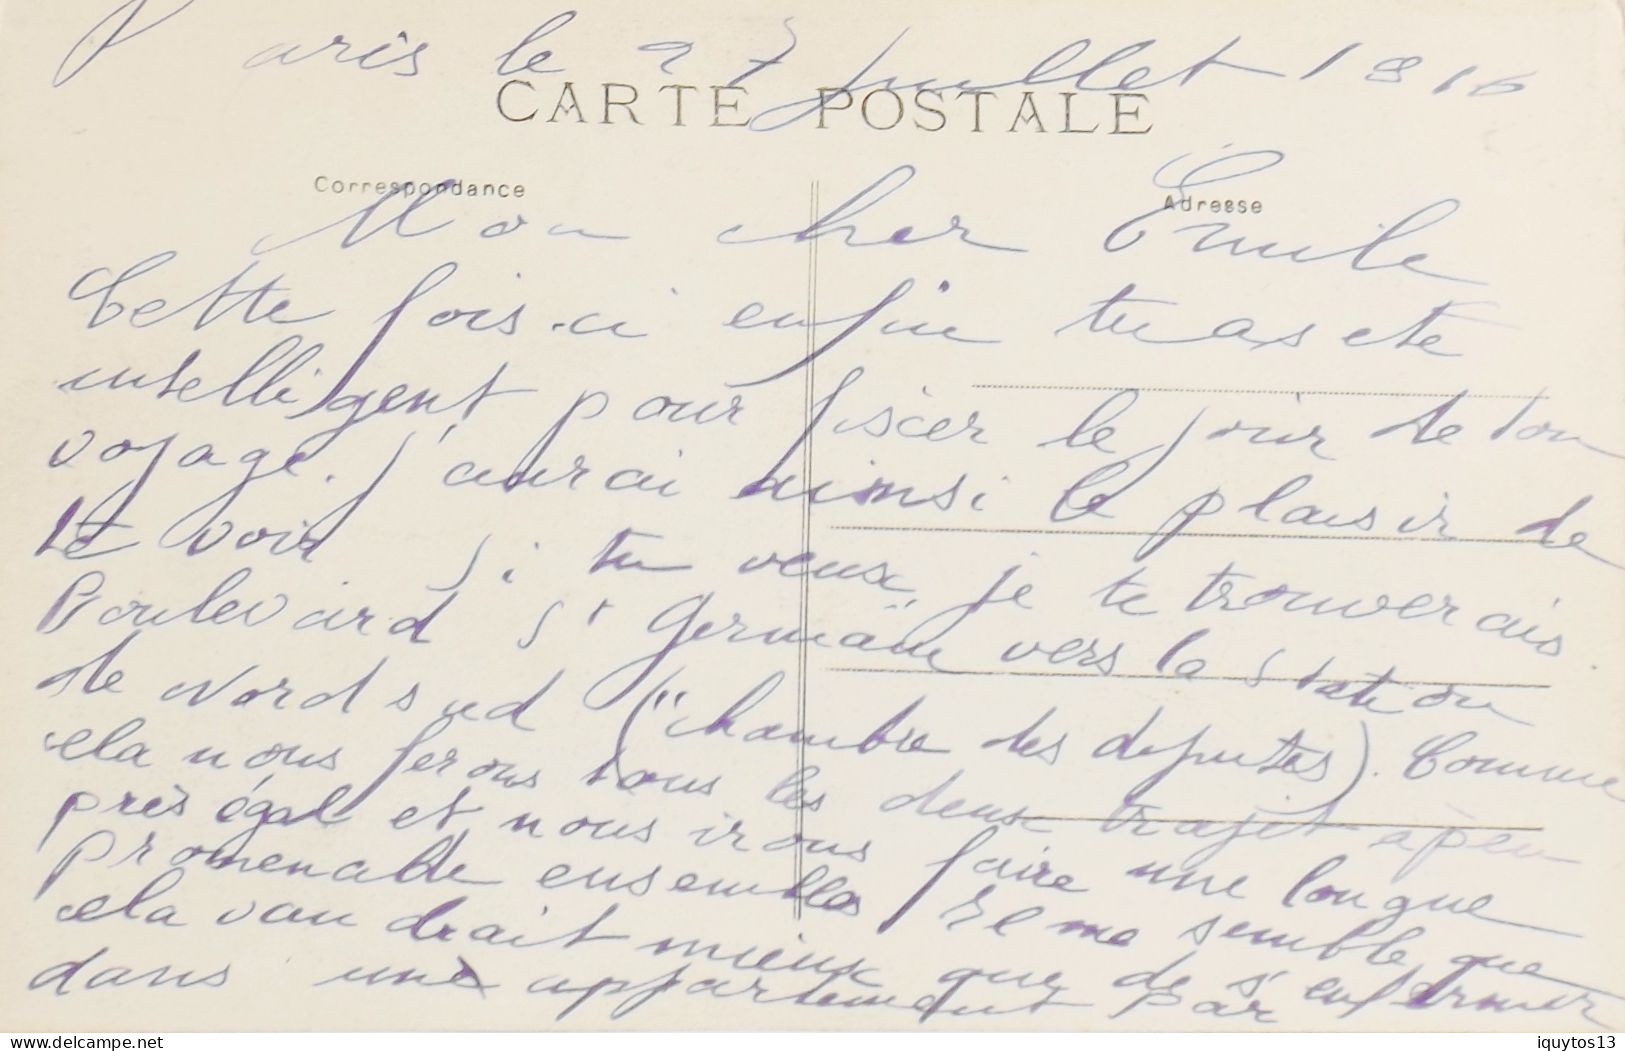 Paris le 27 juillet 1916
CARTE POSTALE
Correspondance
Adresse
Mon cher Emile
Cette fois-ci enfin tu as eté
intelligent pour fiscer le jour de ton
voyage. j'aurai ainsi le plaisir de
te voir Si tu veux, je te trouverais
Boulevard St Germain vers la station
de Nord sud ("Chambre des députes). Comme
cela nous ferons tous les deux trajet apeu
près égal et nous irons faire une longue
promenade ensembles Il me semble que
cela vaudrait mieux que de s'enfermer
dans une appartement par
delcampe.net
iquytos13